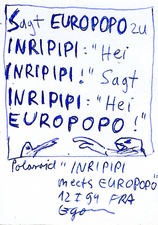 Sagt EUROPOPO zu
INRIPIPI: "Hei
INRIPIPI!" Sagt
INRIPIPI: "Hei
EUROPOPO!"
Polaroid "INRIPIPI
meets EUROPOPO"
12 I 94 FRA